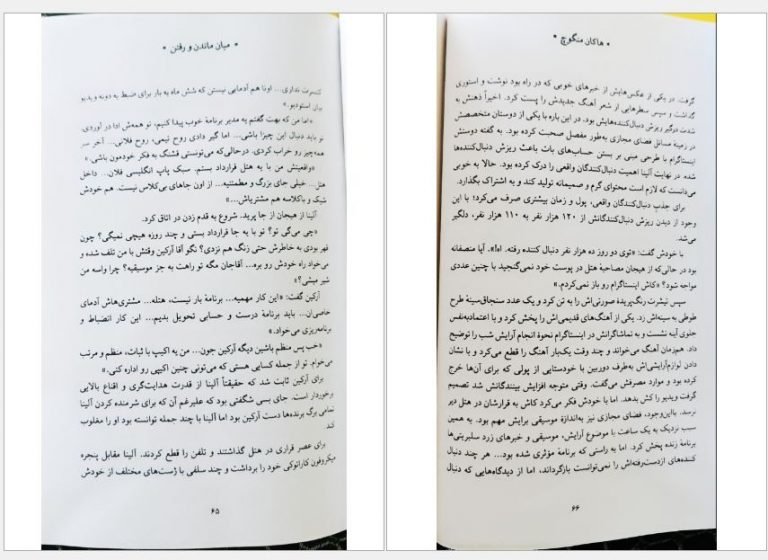 * میان ماندن و رفتن *
کنسرت نداری... اونا هم آدمایی نیستن که شش ماه یه بار برای ضبط یه دونه ویدیو
بیان استودیو.»
«اما من که بهت گفتم یه مدیر برنامهٔ خوب پیدا کنیم، تو همه‌ش ادا در آوردی.
تو باید دنبال این چیزا باشی... اما گیر دادی روح نیمی، روح فلانی... آخر سر
همه‌چیز رو خراب کردی. درحالی‌که می‌تونستی قشنگ به فکر خودمون باشی.»
«واقعیتش من با یه هتل قرارداد بستم. سبک پاپ انگلیسی فلان... داخل
هتل... خیلی جای بزرگ و مطمئنیه... از اون جاهای بی‌کلاس نیست. هم خودش
شیک و باکلاسه هم مشتریاش...»
آلینا از هیجان از جا پرید. شروع به قدم زدن در اتاق کرد.
«چی می‌گی تو؟ تو با یه جا قرارداد بستی و چند روزه هیچی نمیگی؟ چون
قهر بودی به خاطرش حتی زنگ هم نزدی؟ نگو آقا آرکین وقتش با من تلف شده و
می‌خواد راه خودش رو بره... آقاجان مگه تو راهت به جز موسیقیه؟ چرا واسه من
شیر میشی؟»
آرکین گفت: «این کار مهمیه... برنامهٔ بار نیست، هتله... مشتری‌هاش آدمای
خاصی‌ان... باید برنامهٔ درست و حسابی تحویل بدیم... این کار انضباط و
برنامه‌ریزی می‌خواد.»
«خب پس منظم باشین دیگه آرکین جون... من یه اکیپ با ثبات، منظم و مرتب
می‌خوام. تو از جمله کسایی هستی که می‌تونی چنین اکیپی رو اداره کنی.»
برای آرکین ثابت شد که حقیقتاً آلینا از قدرت هدایت‌گری و اقناع بالایی
برخوردار است. جای بسی شگفتی بود که علیرغم آن که برای شرمنده کردن آلینا
تمامی برگ برنده‌ها دست آرکین بود اما آلینا با چند جمله توانسته بود او را مغلوب
کند.
برای عصر قراری در هتل گذاشتند و تلفن را قطع کردند. آلینا مقابل پنجره
میکروفون کارائوکی خود را برداشت و چند سلفی با ژست‌های مختلف از خودش
۶۵
* هاکان منگوچ *
گرفت. در یکی از عکس‌هایش از خبرهای خوبی که در راه بود نوشت و استوری
گذاشت و سپس سطرهایی از شعر آهنگ جدیدش را پست کرد. اخیراً ذهنش به
شدت درگیر ریزش دنبال‌کننده‌هایش بود. در این باره با یکی از دوستان متخصصش
در زمینهٔ مسائل فضای مجازی به‌طور مفصل صحبت کرده بود. به گفته دوستش
اینستاگرام با طرحی مبنی بر بستن حساب‌های بات باعث ریزش دنبال‌کننده‌ها
شده. در نهایت آلینا اهمیت دنبال‌کنندگان واقعی را درک کرده بود. حالا به خوبی
می‌دانست که لازم است محتوای گرم و صمیمانه تولید کند و به اشتراک بگذارد.
برای جذب دنبال‌کنندگان واقعی، پول و زمان بیشتری صرف می‌کرد؛ با این
وجود از دیدن ریزش دنبال‌کنندگانش از ۱۲۰ هزار نفر به ۱۱۰ هزار نفر، دلگیر
می‌شد.
با خودش گفت: «توی دو روز ده هزار نفر دنبال کننده رفته. اه!». آیا منصفانه
بود در حالی‌که از هیجان مصاحبهٔ هتل در پوست خود نمی‌گنجید با چنین عددی
مواجه شود؟ «کاش اینستاگرام رو باز نمی‌کردم.»
سپس تیشرت رنگ‌پریدهٔ صورتی‌اش را به تن کرد و یک عدد سنجاق‌سینهٔ طرح
طوطی به سینه‌اش زد. یکی از آهنگ‌های قدیمی‌اش را پخش کرد و با اعتمادبه‌نفس
جلوی آینه نشست و به تماشاگرانش در اینستاگرام نحوهٔ انجام آرایش شب را توضیح
داد. هم‌زمان آهنگ می‌خواند و چند وقت یک‌بار آهنگ را قطع می‌کرد و با نشان
دادن لوازم‌آرایشی‌اش به‌طرف دوربین با خودستایی از پولی که برای آن‌ها خرج
کرده بود و موارد مصرفش می‌گفت. وقتی متوجه افزایش بینندگانش شد تصمیم
گرفت ویدیو را کش بدهد. اما با خودش فکر می‌کرد کاش به قرارشان در هتل دیر
نرسد. بااین‌وجود، فضای مجازی نیز به‌اندازهٔ موسیقی برایش مهم بود. به همین
سبب نزدیک به یک ساعت با موضوع آرایش، موسیقی و خبرهای زرد سلبریتی‌ها
برنامهٔ زنده پخش کرد. اما به راستی که برنامهٔ مؤثری شده بود... هر چند دنبال
کننده‌های ازدست‌رفته‌اش را نمی‌توانست بازگرداند، اما از دیدگاه‌هایی که دنبال
۶۶